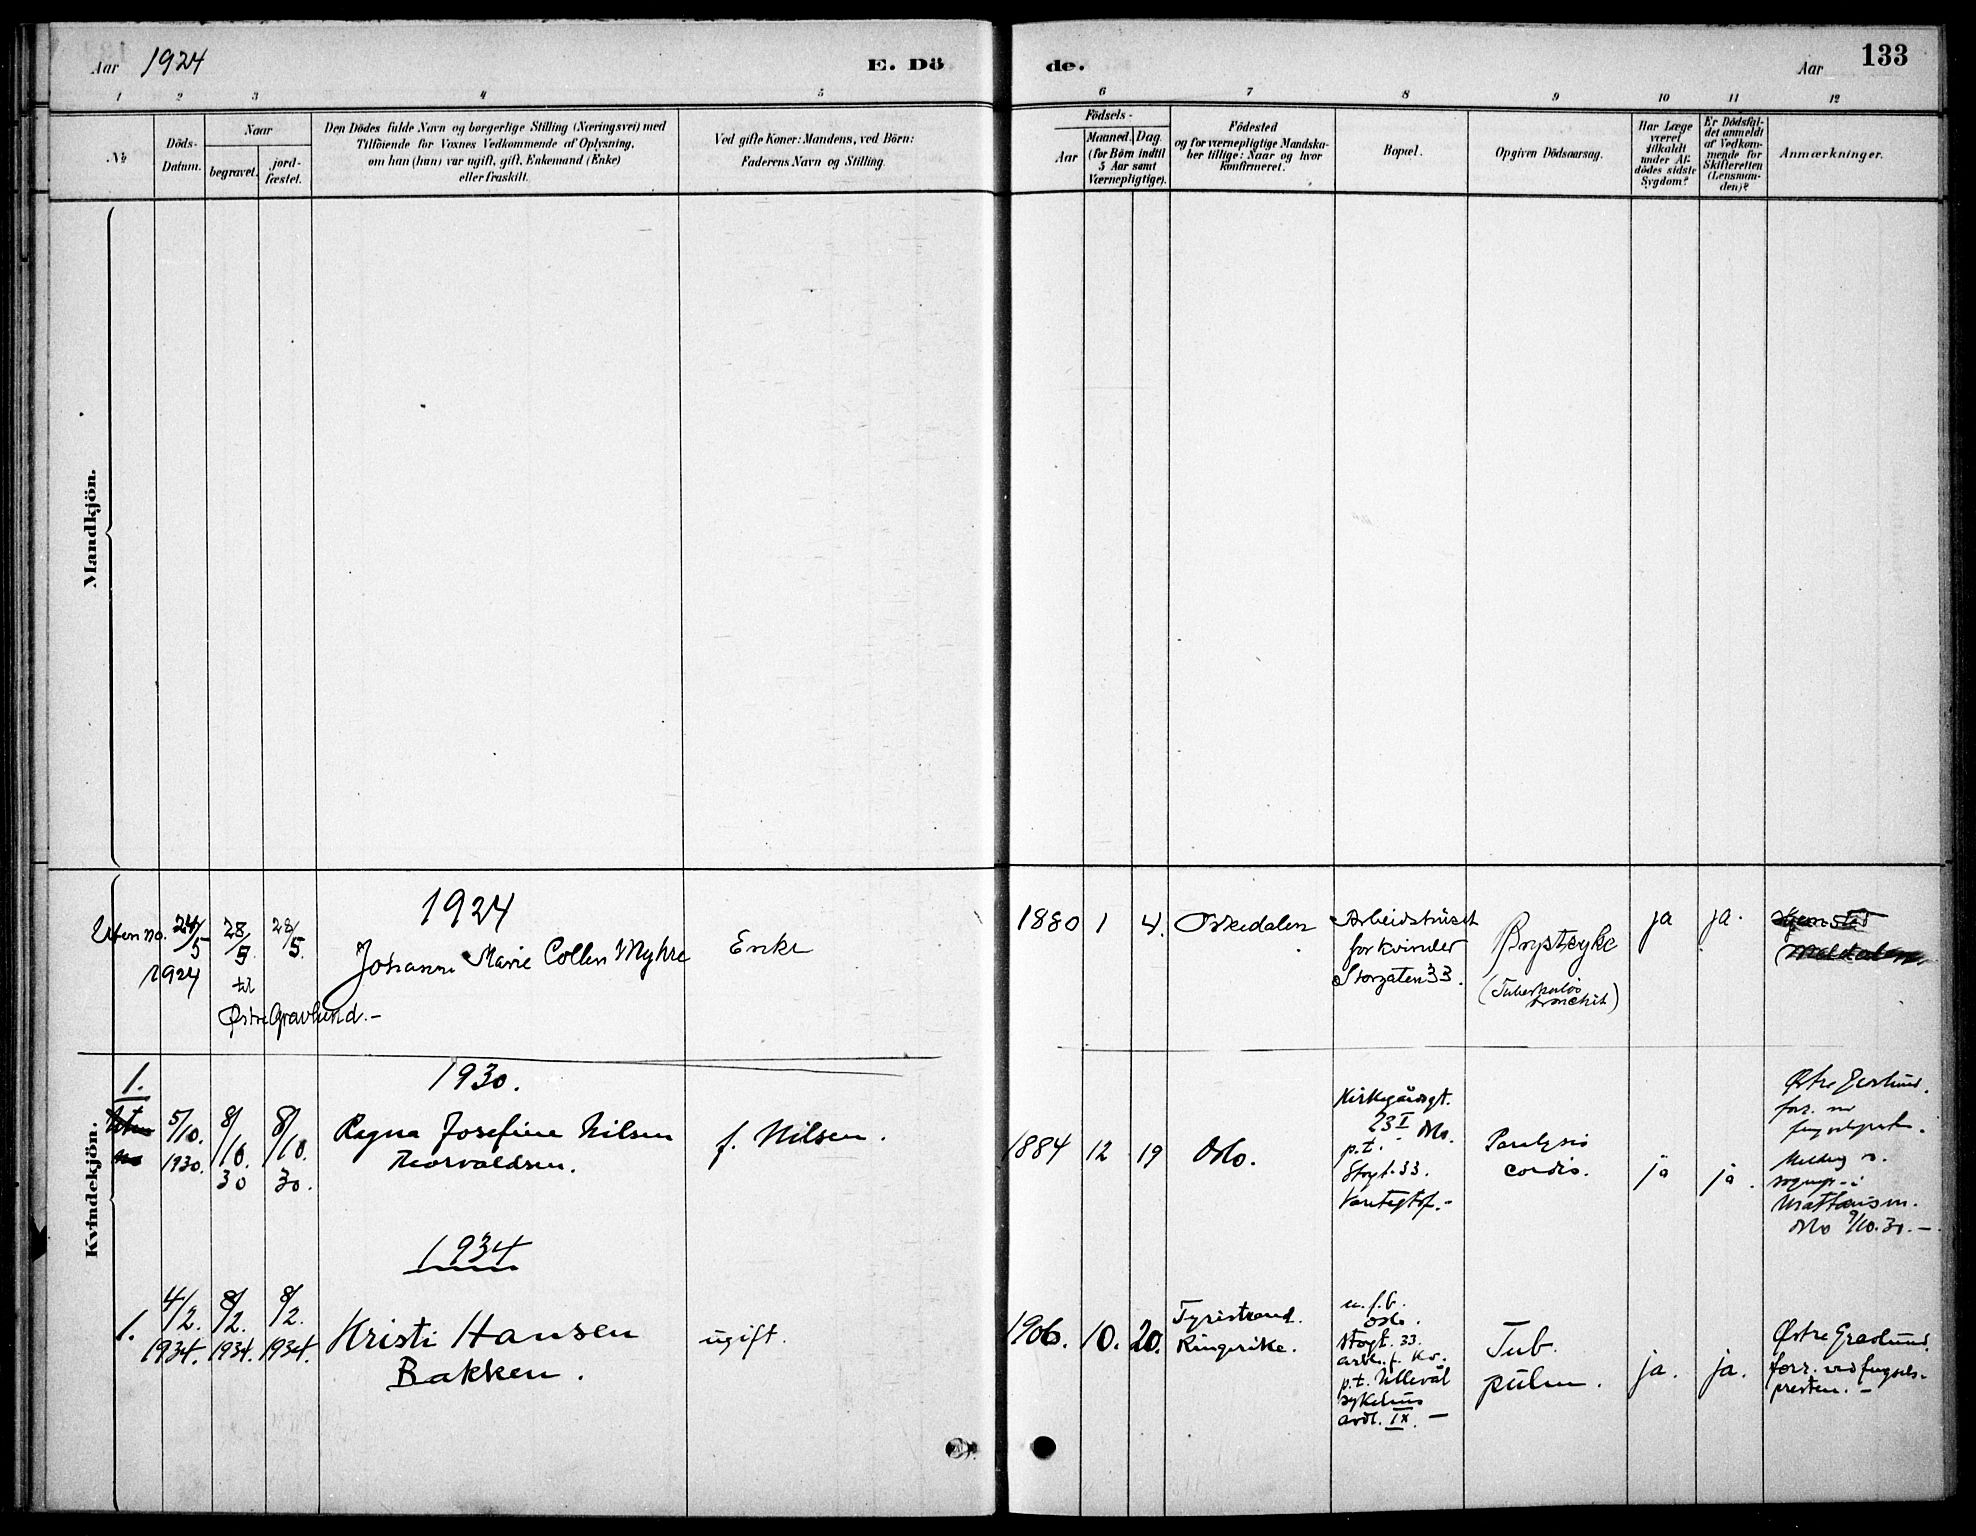 Aar 1924
E. Dö
de.
Aar
133
1 2 3 4 5 6 7 8 9 10 11 12
No
Döds-
Datum.
Naar
begravet.
jord-
fæstet.
Den Dödes fulde Navn og borgerlige Stilling (Næringsvei) med
Tilföiende for Voxnes Vedkommende af Oplysning,
om han (hun) var ugift, gift, Enkemand (Enke)
eller fraskilt.
Ved gifte Koner: Mandens, ved Börn:
Faderens Navn og Stilling.
Födsels-
Aar
Maaned. Dag.
(for Börn indtil
5 Aar samt
Værnepligtige).
Födested
og for værnepligtige Mandska-
ber tillige: Naar og hvor
konfirmeret.
Bopæl.
Opgiven Dödsaarsag.
Har Læge
været
tilkaldt
under Af-
dödes sidste
Sygdom?
Er Dödsfal-
det anmeldt
af Vedkom-
mende for
Skifteretten
(Lensman-
den)?
Anmærkninger.
Mandkjön.
Kvindekjön.
1924
Uten no.
24/5
1924
28/5
til
Østre Gravlund.-
28/5.
Johanne Marie Collen Myhre
Enke
1880 1 4.
Askedalen
Arbeidshuset
for kvinder
Storgaten 33.
Brystsyke
(Tuberkuløs
bronchit)
ja
ja.
1930.
1.
Uten
no
5/10.
1930.
8/10.
30
8/10.
30.
Ragna Josefine Nilsen
Thorvaldsen.
f. Nilsen.
1884 12 19
Oslo.
Kirkegårdsgt.
23 I Oslo.
p.t.
Stogt. 33.
Paralysis
cordis.
ja
ja.
Østre Gravlund.
forr. ved
Oslo 9/10.30.-
1934
1.
4/2.
1934.
8/2.
1934.
8/2.
1934.
Kristi Hansen
Bakken.
ugift.
1906. 10. 20.
Tyristrand.
Ringerike.
u. f. b.
Oslo.
Stogt. 33.
arbh. f. Kv.
p.t. Ullevål
sykehus
avdl. IX. -
Tub.
pulm.
ja.
ja.
Østre Gravlund.
forr. ved fengsels-
presten. -